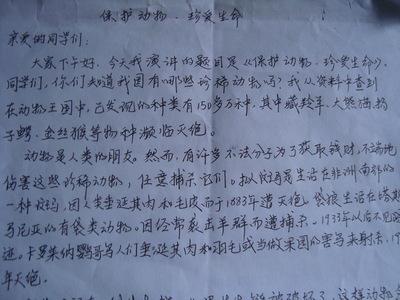 保护动物·珍爱生命
亲爱的同学们：
大家下午好，今天我演讲的题目是《保护动物，珍爱生命》。
同学们，你们知道我国有哪些珍稀动物吗？我从资料中查到
在动物王国中，已发现的种类有150多万种，其中藏羚羊、大熊猫、扬
子鳄、金丝猴等物种濒临灭绝。
动物是人类的朋友。然而，有许多不法分子为了获取钱财，不断地
伤害这些珍稀动物，任意捕杀它们。拟斑马是生活在非洲南部的
一种斑马，因人类垂涎其肉和毛皮而于1883年遭灭绝。袋狼生活在塔斯
马尼亚的有袋类动物。因经常袭击羊群而遭捕杀，1933年以后不见踪
迹。卡罗莱纳鹦哥与人们垂涎其肉和羽毛或当做果园的害鸟来射杀，19
年灭绝。